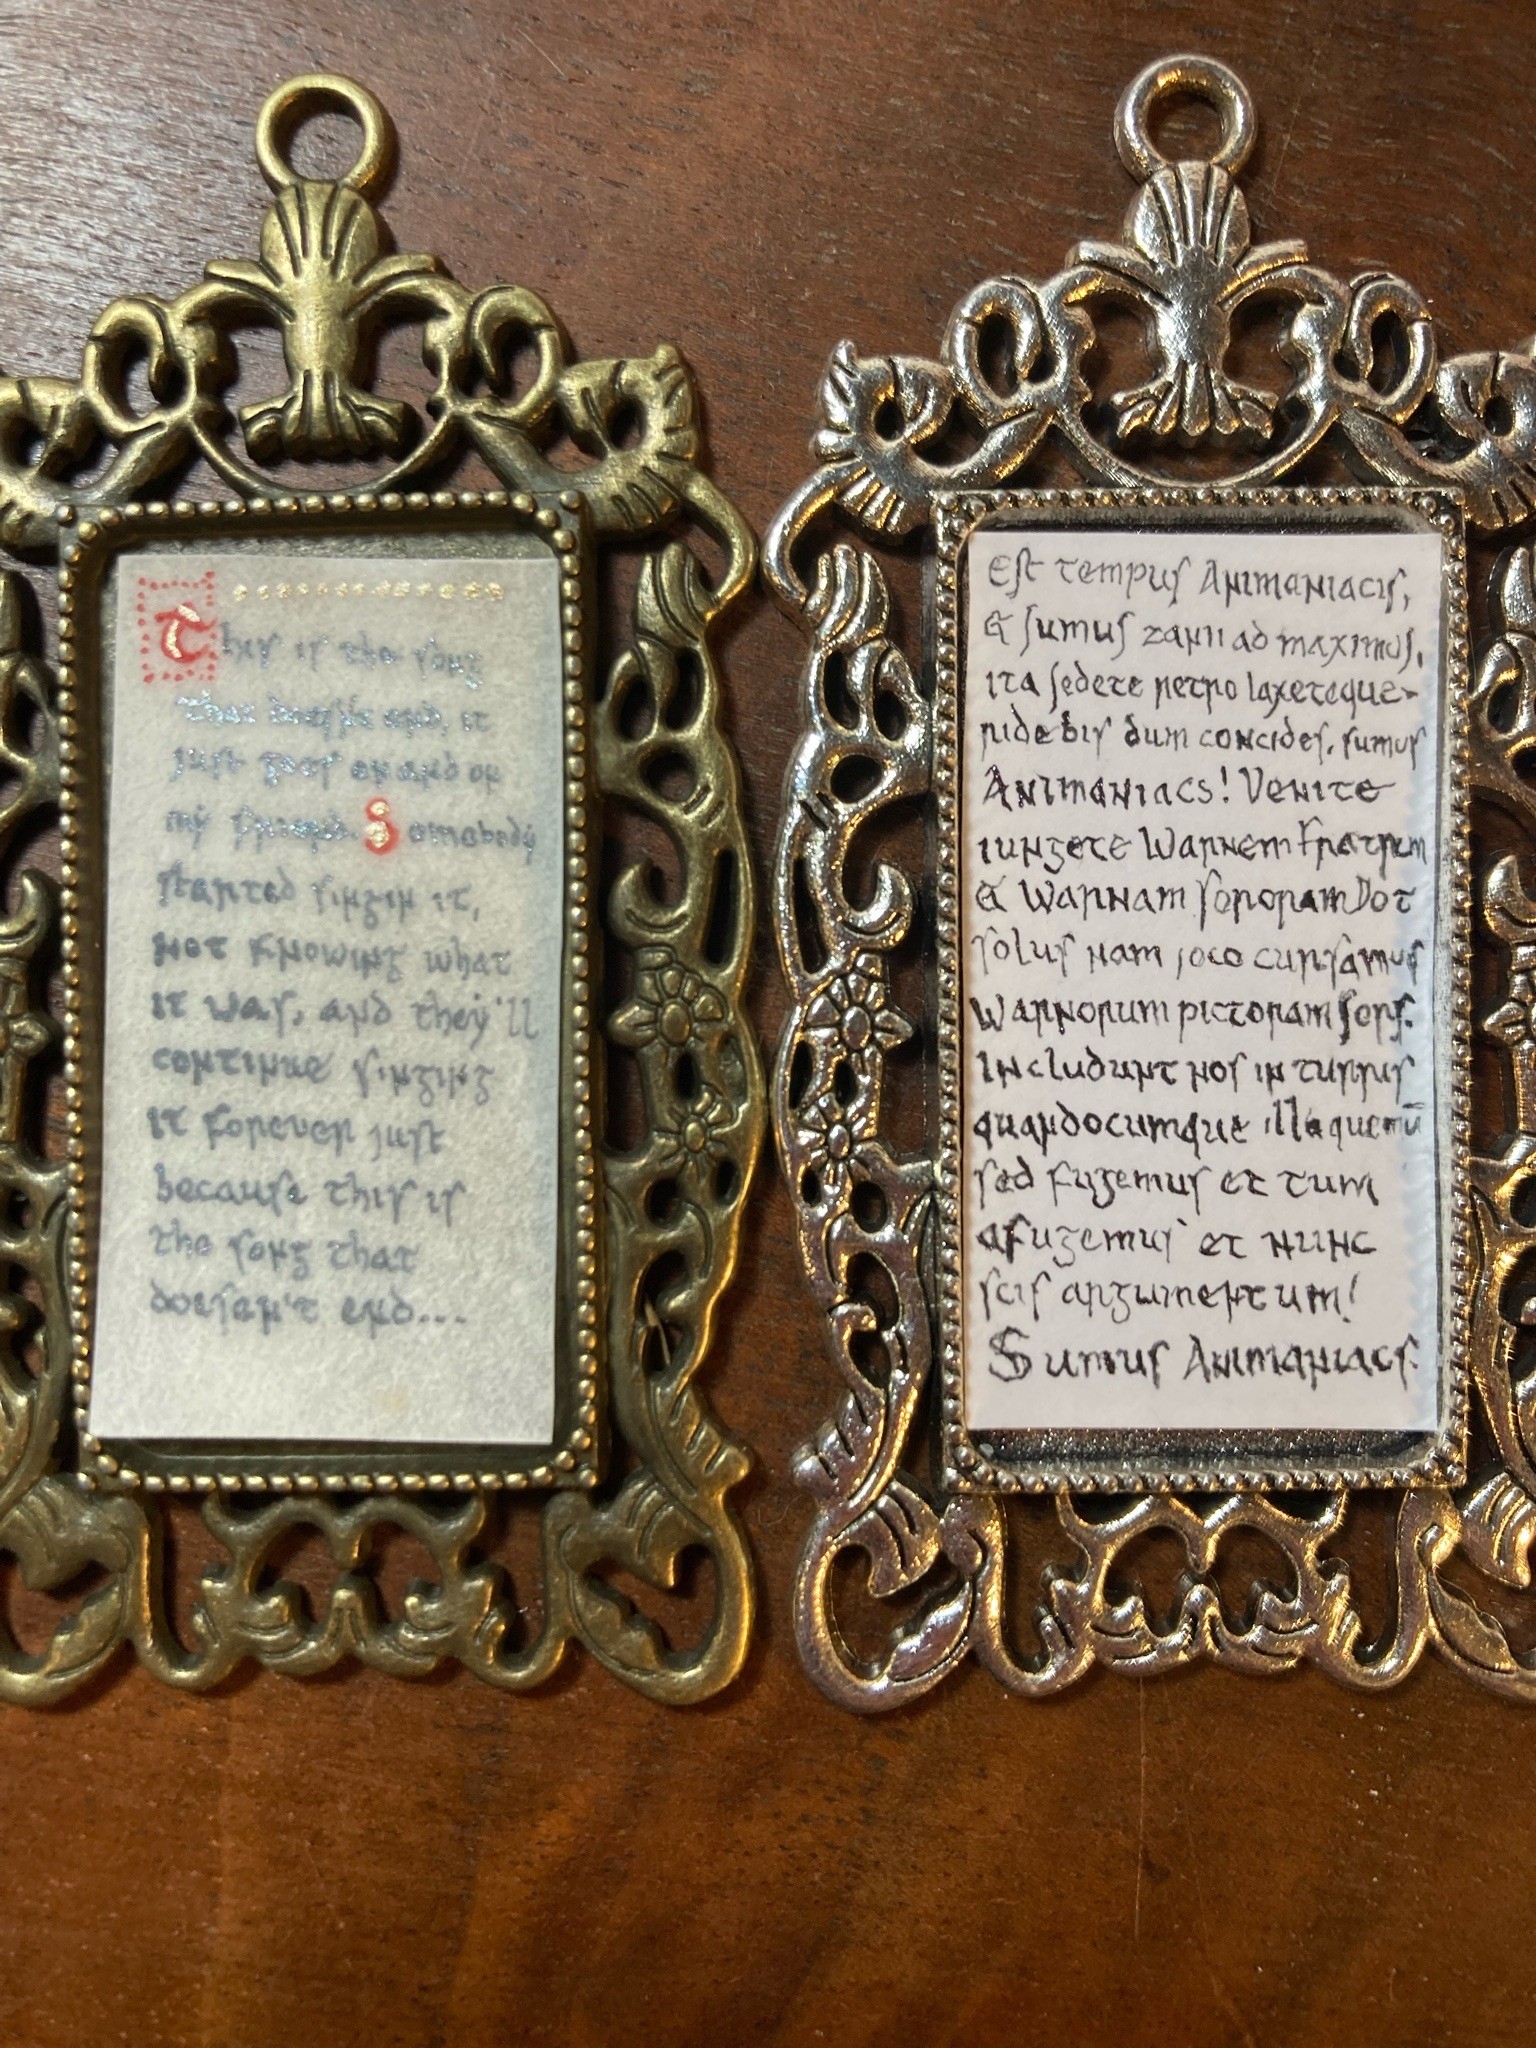 This is the song
that doesn't end, it
just goes on and on
my friend. Somebody
started singin it,
not knowing what
it was, and they'll
continue singing
it forever just
because this is
the song that
doesen't end...
Est tempus Animaniacis,
& sumus zanii ad maximus,
ita sedete retro laxeteque
ridebis dum concides, sumus
Animaniacs! Venite
iungete Warnem fratrem
& Warnam sororam Dot
solus nam joco cursamus
Warnorum pictoram sors.
Includunt nos in turrus
quandocumque illaquemū
sed fugemus et tum
afugemus et nunc
scis argumentum!
Sumus Animaniacs.